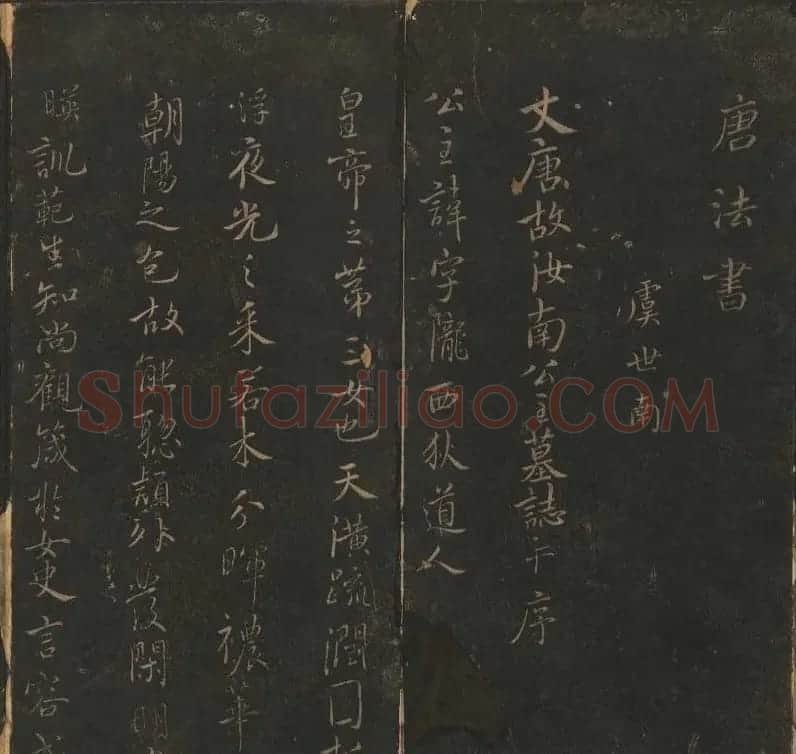 唐法書
虞世南
大唐故汝南公主墓誌并序
公主諱字隴西狄道人
皇帝之第三女也天潢疏潤圓折
浮夜光之采若木分暉禯華
朝陽之色故能聰穎外發閑明
暎訓範生知尚觀箴於女史言容
Shufaziliao.COM